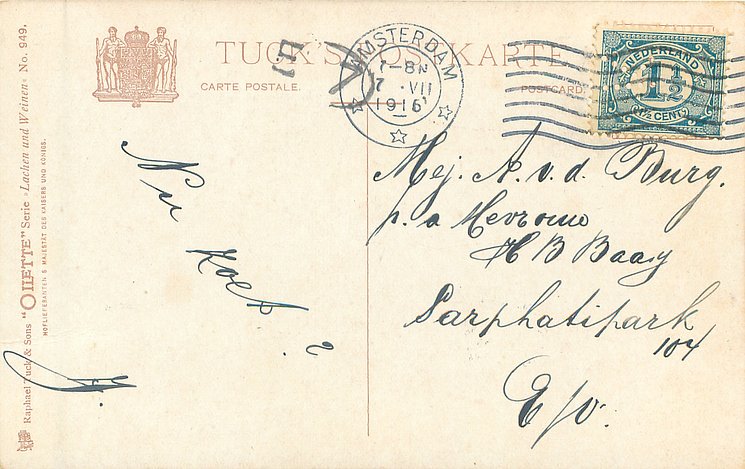 TUCK'S POSTKARTE
CARTE POSTALE.
POSTCARD.
AMSTERDAM
7-8N
7 .VII
1916
NEDERLAND
1½
(1½ CENT)
Mej. A. v. d. Burg.
p. a Mevrouw
H B Baay
Sarphatipark
104
E/o.
Nu koest ?
Raphael Tuck & Sons "OILETTE" Serie „Lachen und Weinen" No. 949.
HOFLIEFERANTEN S MAJESTÄT DES KAISERS UND KÖNIGS.